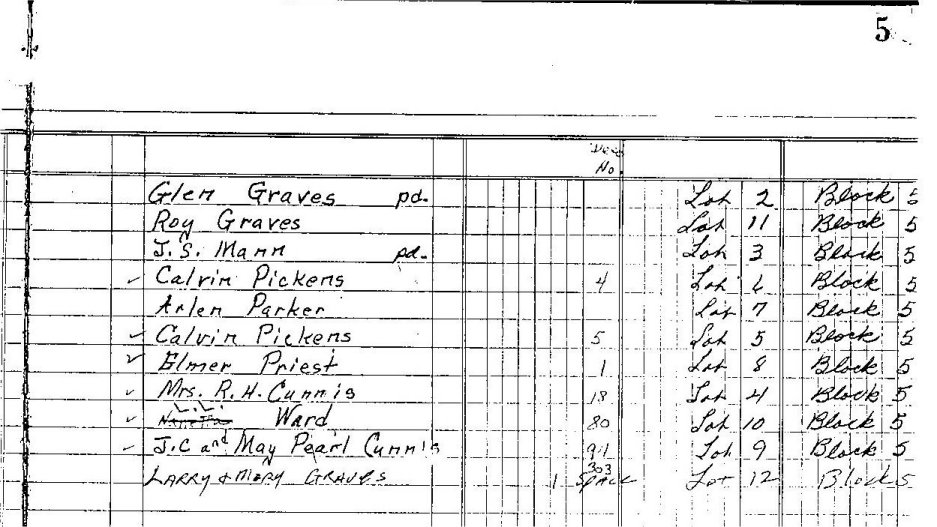 5
Deed
No.
Glen Graves pd. Lot 2 Block 5
Roy Graves Lot 11 Block 5
J.S. Mann pd. Lot 3 Block 5
✓ Calvin Pickens 4 Lot 6 Block 5
Arlen Parker Lot 7 Block 5
✓ Calvin Pickens 5 Lot 5 Block 5
✓ Elmer Priest 1 Lot 8 Block 5
✓ Mrs. R.H. Cunnis 18 Lot 4 Block 5
✓ Ward 80 Lot 10 Block 5
✓ J.C and May Pearl Cunnis 91 Lot 9 Block 5
303
LARRY & MARY GRAVES 1 SPACE Lot 12 Block 5